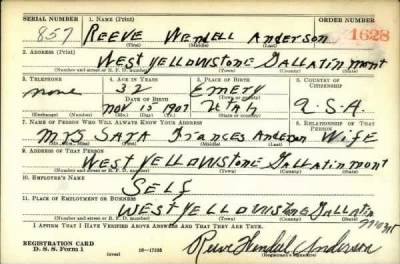 SERIAL NUMBER 1. NAME (Print) ORDER NUMBER
857 REEVE WENDELL Anderson 1628
(First) (Middle) (Last)
2. ADDRESS (Print)
West Yellowstone Gallatin Mont
(Number and street or R. F. D. number) (Town) (County) (State)
3. TELEPHONE 4. AGE IN YEARS 5. PLACE OF BIRTH 6. COUNTRY OF CITIZENSHIP
none 32 Emery
DATE OF BIRTH
Nov 15 1907 Utah U.S.A.
(Exchange) (Number) (Mo.) (Day) (Yr.) (State or country)
7. NAME OF PERSON WHO WILL ALWAYS KNOW YOUR ADDRESS 8. RELATIONSHIP OF THAT PERSON
MRS SARA Frances Anderson Wife
(Mr., Mrs., Miss) (First) (Middle) (Last)
9. ADDRESS OF THAT PERSON
West Yellowstone Gallatin Mont
(Number and street or R. F. D. number) (Town) (County) (State)
10. EMPLOYER'S NAME
SELF
11. PLACE OF EMPLOYMENT OR BUSINESS
West Yellowstone Gallatin Mont
(Number and street or R. F. D. number) (Town) (County) (State)
I AFFIRM THAT I HAVE VERIFIED ABOVE ANSWERS AND THAT THEY ARE TRUE.
REGISTRATION CARD
D. S. S. Form 1 (over) Reeve Wendel Anderson
(Registrant's signature)